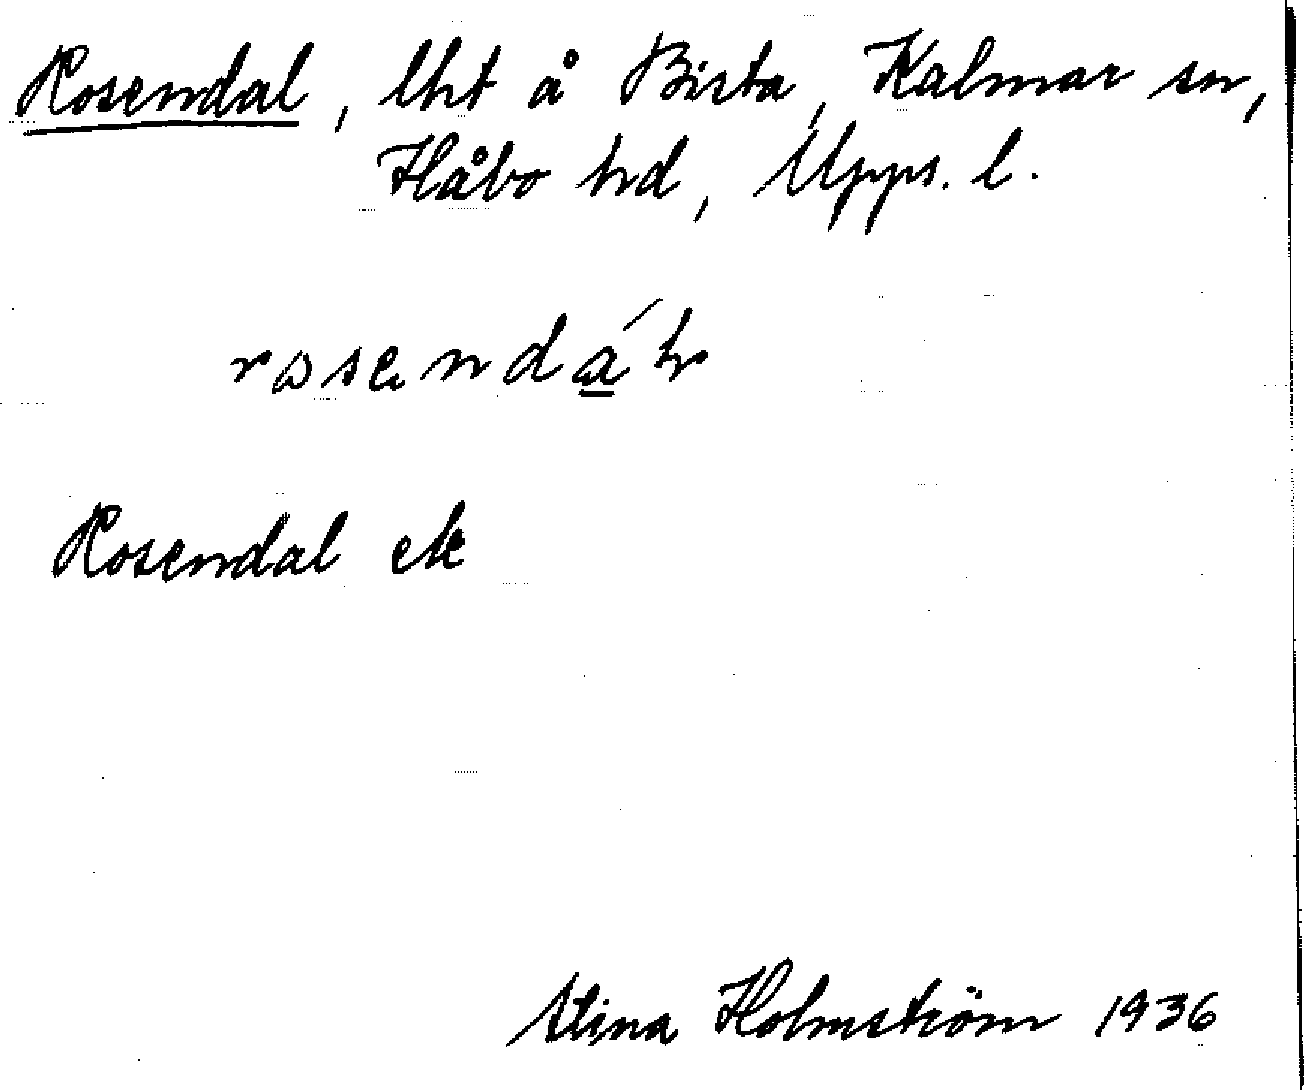 Rosendal, lht å Bista, Kalmar sn,
Håbo hd, Upps. l.
Rosendal ek
Stina Holmström 1936